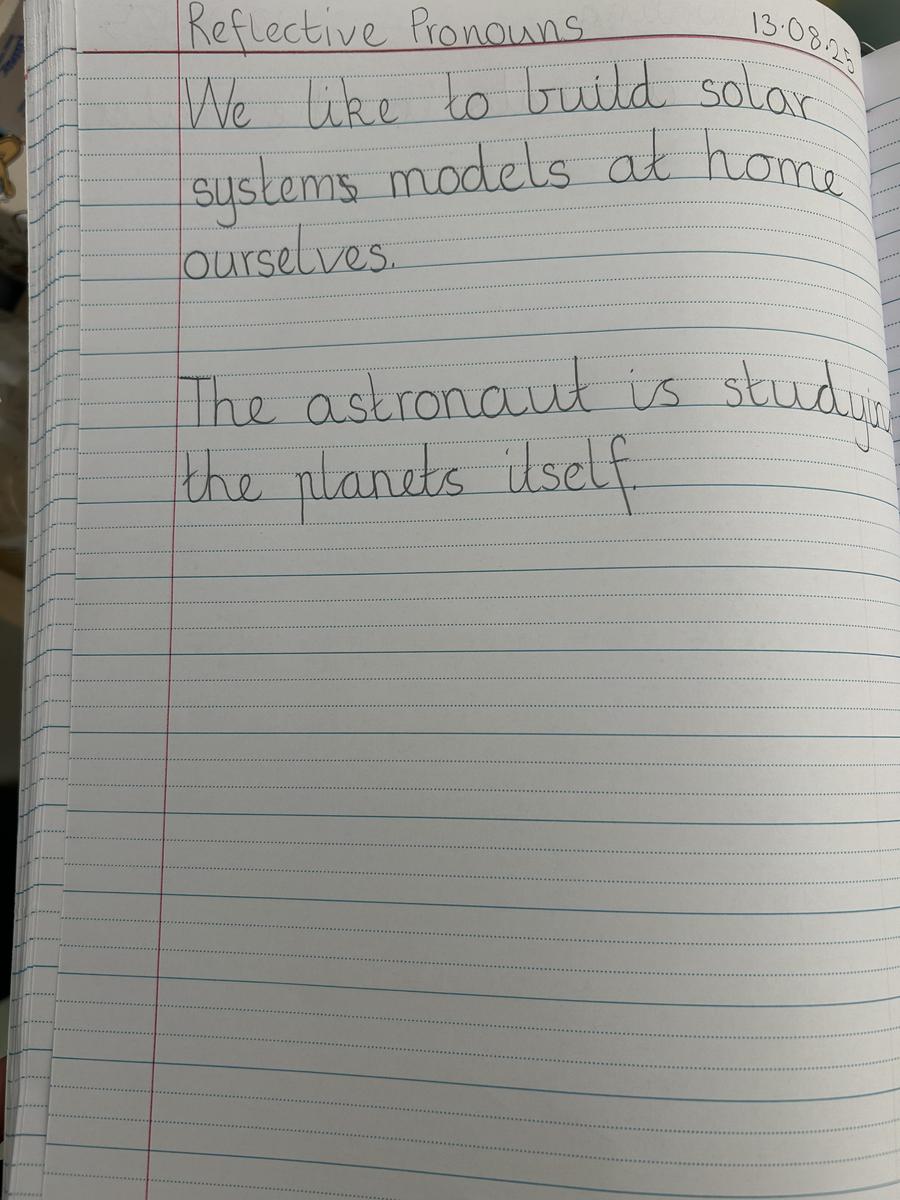 Reflective Pronouns 13.08.25
We like to build solar
systems models at home
ourselves.
The astronaut is studyin
the planets itself.